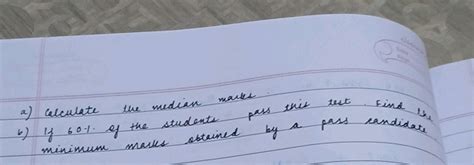 a) Calculate the median marks.
b) If 60% of the students pass this test. Find the
minimum marks obtained by a pass candidate